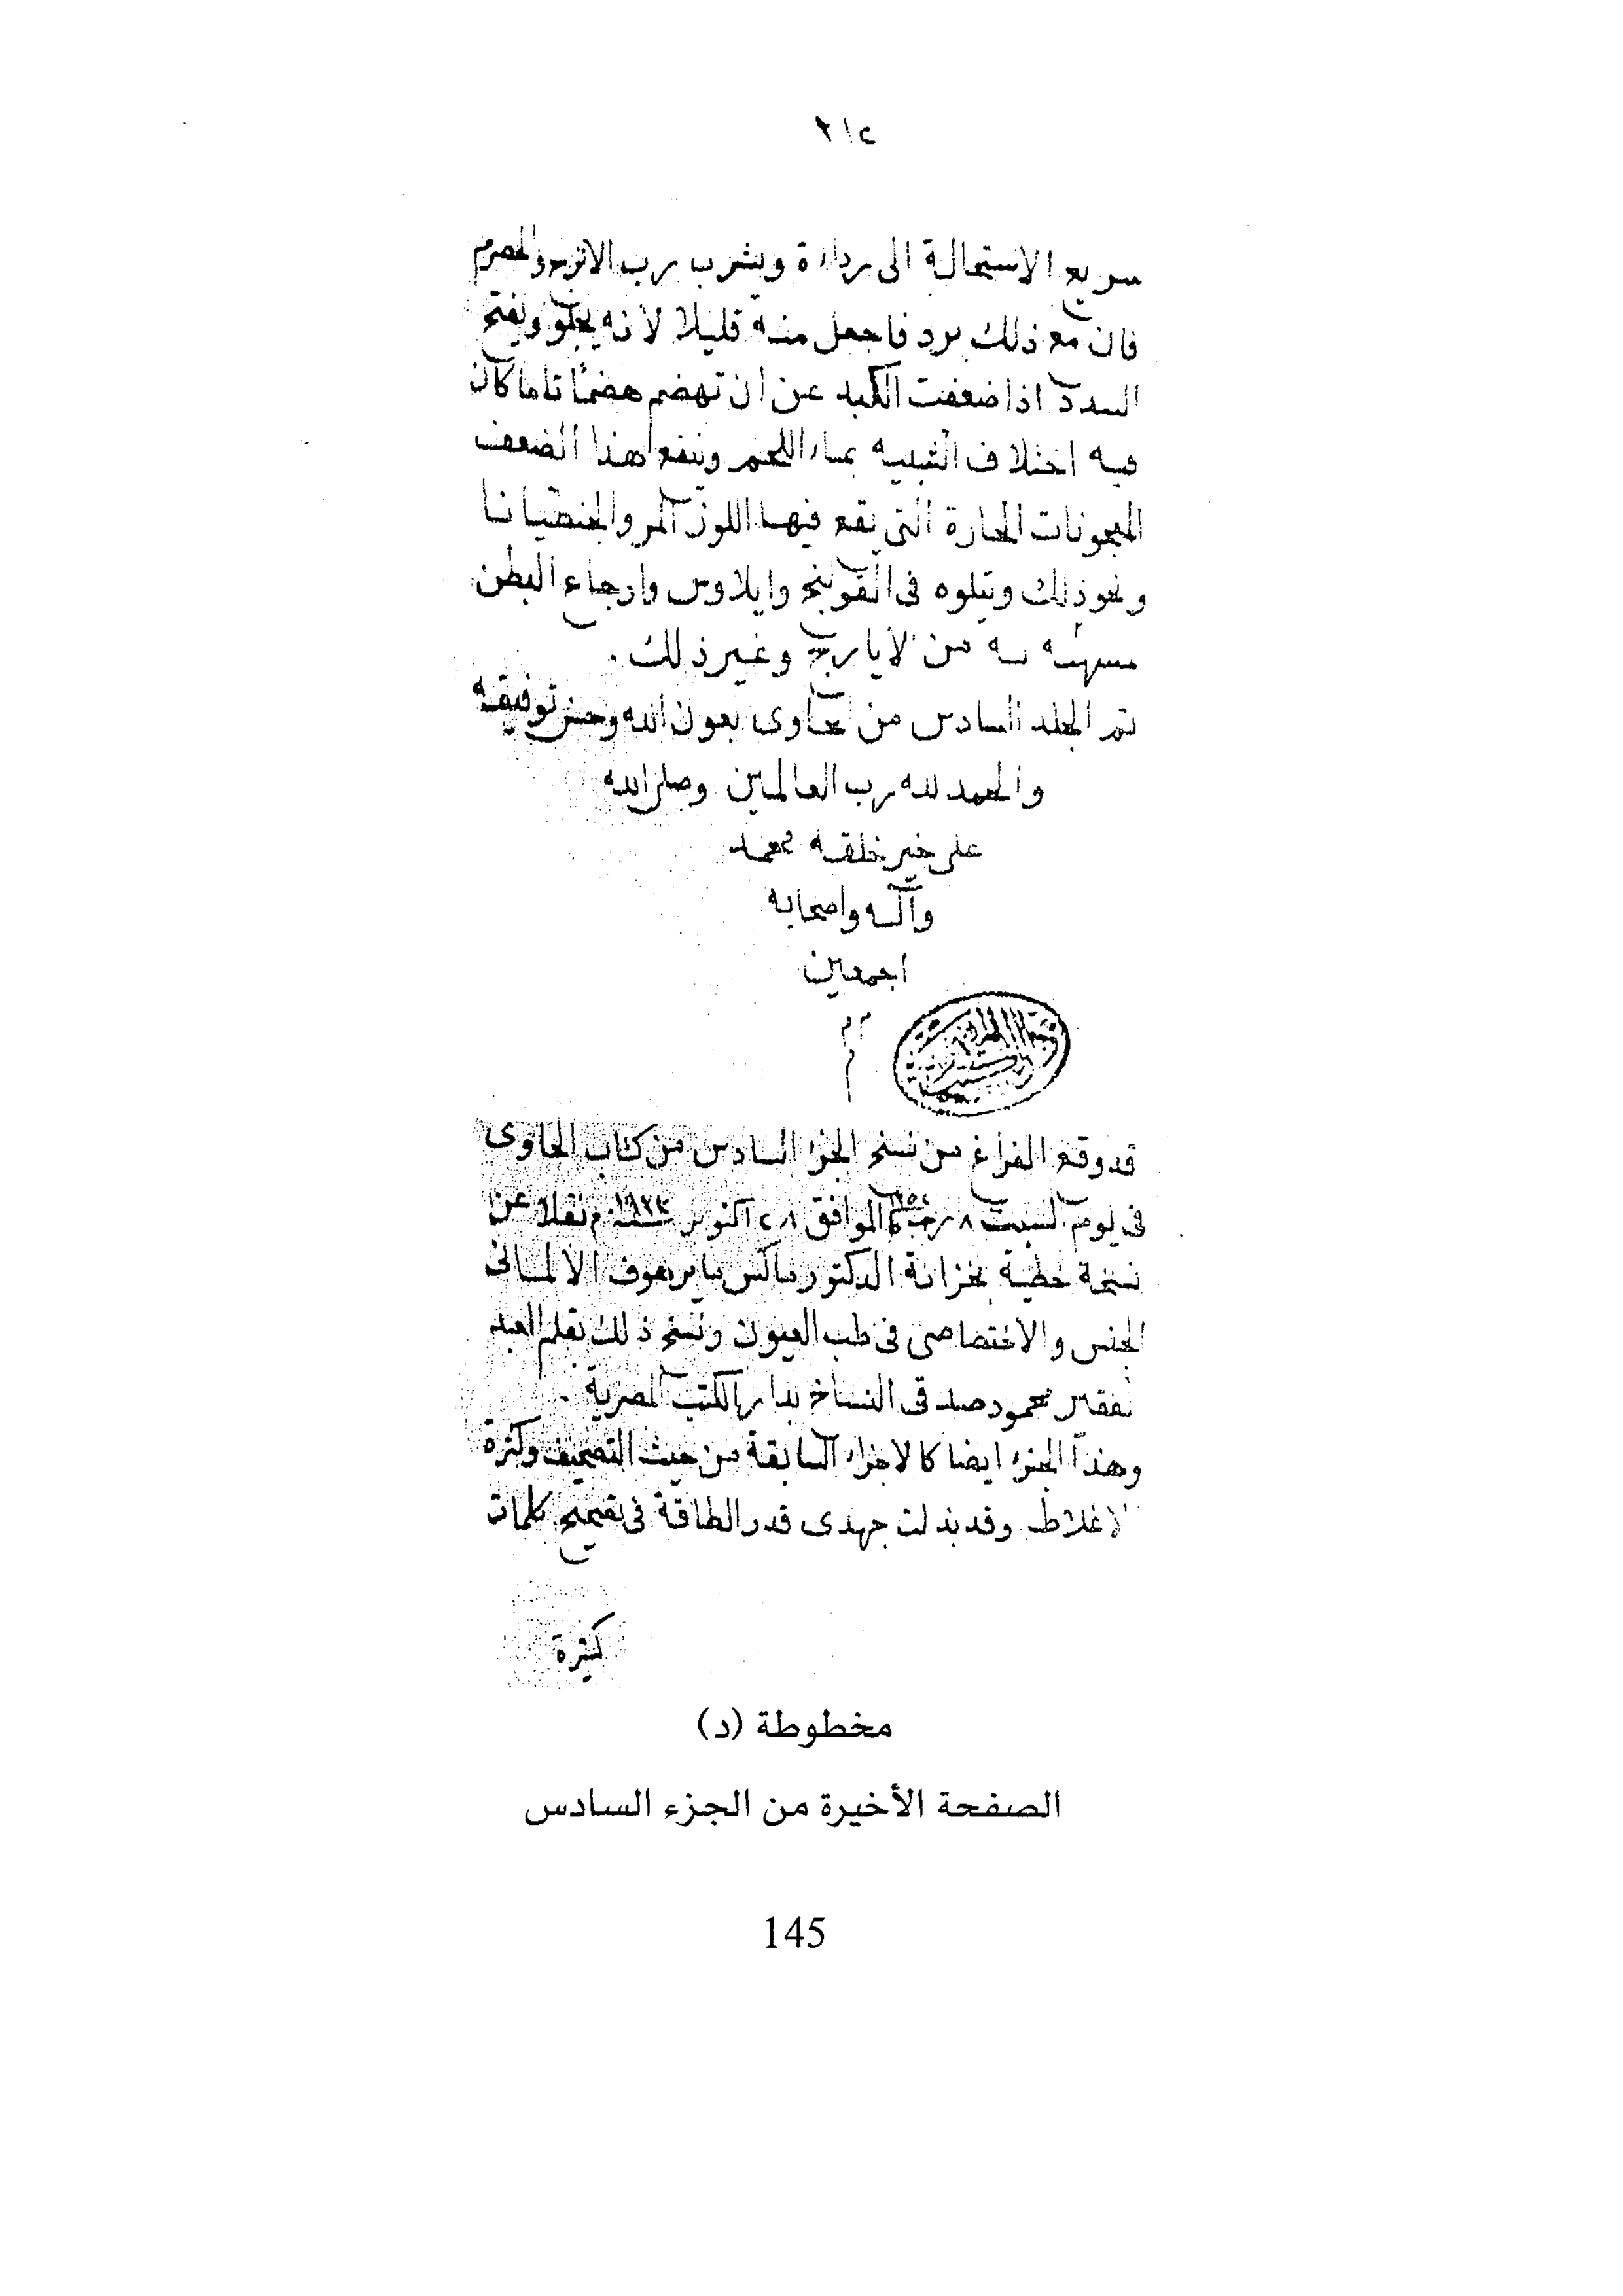 ٢١٢
سريع الاستحالة الى رداءة ويشرب رب الاترج والحصرم
فان مع ذلك برد فاجعل منه قليلا لانه يجلو ويفتح
السدد اذا ضعفت الكبد عن ان تهضم هضمًا تاما كان
فيه اختلاف الشبيه بماء اللحم وينفع هذا الضعف
المعجونات الحارة التى يقع فيها اللوز المر والجنطيانا
ونحو ذلك ويتلوه فى القولنج وايلاوس واوجاع البطن
من لايارج وغير ذلك .
تم المجلد السادس من الحاوى بعون الله وحسن توفيقه
والحمد لله رب العالمين وصلى الله
على خير خلقه محمد
وآله واصحابه
اجمعين
قد وقع الفراغ من نسخ الجزء السادس من كتاب الحاوى
فى يوم السبت ٨ رجب الموافق ٢٨ اكتوبر سنة نقلا عن
نسخة خطية بخزانة الدكتور ماكس مايرهوف الالمانى
الجنس والاختصاصى فى طب العيون ونسخ ذلك بقلم العبد
الفقير محمود صدقى النساخ بدار الكتب المصرية .
وهذا الجزء ايضا كالاجزاء السابقة من حيث التصحيف وكثرة
الاغلاط وقد بذلت جهدى قدر الطاقة فى تصحيح كلمات
كثيرة
مخطوطة (د)
الصفحة الأخيرة من الجزء السادس
145